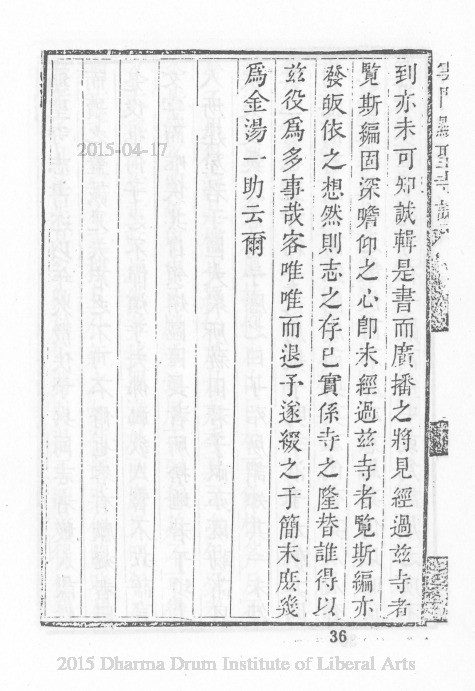 到亦未可知誠輯是書而廣播之將見經過兹寺者
覧斯編固深瞻仰之心卽未經過兹寺者覧斯編亦
發皈依之想然則志之存已實係寺之隆替誰得以
兹役爲多事哉客唯唯而退予遂綴之于簡末庶幾
爲金湯一助云爾
2015-04-17
36
2015 Dharma Drum Institute of Liberal Arts